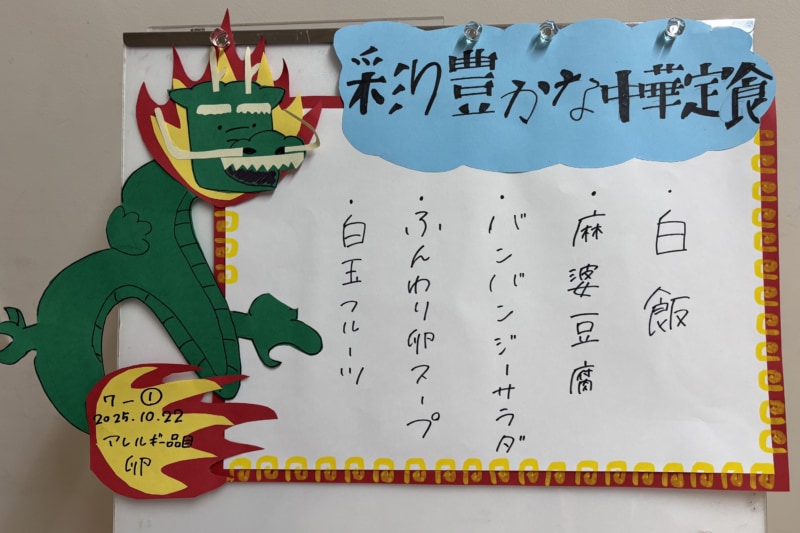 彩り豊かな中華定食
・白飯
・麻婆豆腐
・バンバンジーサラダ
・ふんわり卵スープ
・白玉フルーツ
ワー①
2025.10.22
アレルギー品目
卵